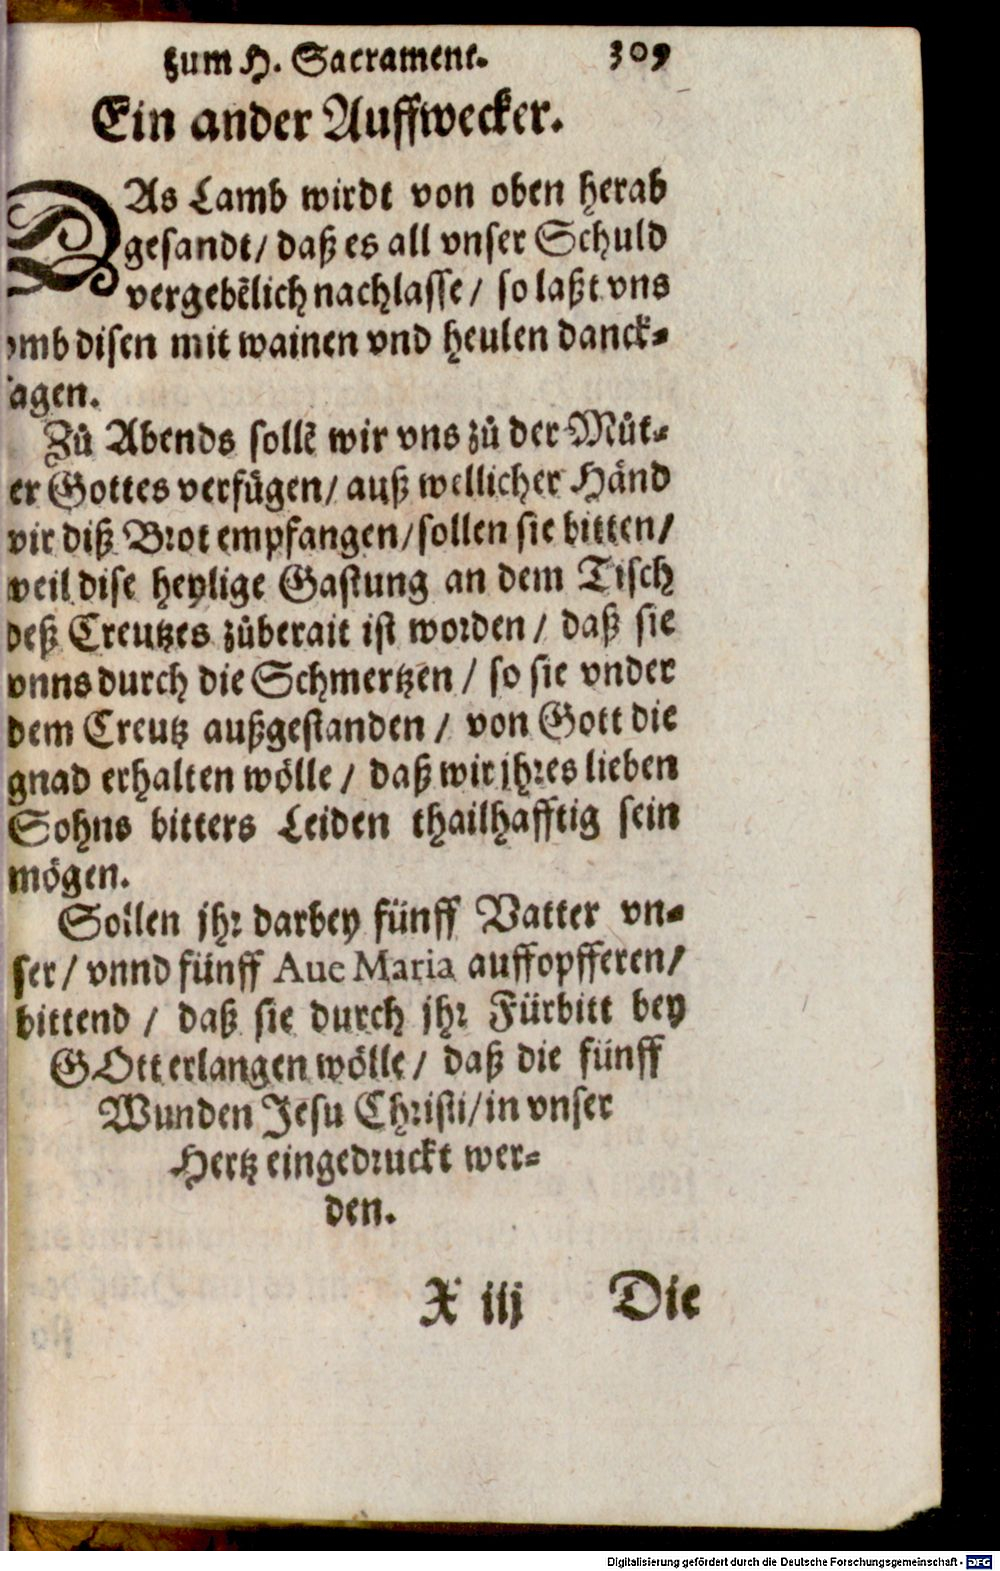 zum H. Sacrament. 309
Ein ander Auffwecker.
DAs Lamb wirdt von oben herab
gesandt/ daß es all vnser Schuld
vergebẽlich nachlasse/ so laßt vns
vmb disen mit wainen vnd heulen danck-
agen.
Zů Abends sollẽ wir vns zů der Můt-
er Gottes verfügen/ auß wellicher Händ
wir diß Brot empfangen/ sollen sie bitten/
weil dise heylige Gastung an dem Tisch
deß Creutzes zůberait ist worden/ daß sie
vnns durch die Schmertzen/ so sie vnder
dem Creutz außgestanden/ von Gott die
gnad erhalten wölle/ daß wir jhres lieben
Sohns bitters Leiden thailhafftig sein
mögen.
Sollen jhr darbey fünff Vatter vn-
ser/ vnnd fünff Aue Maria auffopfferen/
bittend/ daß sie durch jhr Fürbitt bey
GOtt erlangen wölle/ daß die fünff
Wunden Jesu Christi/ in vnser
Hertz eingedruckt wer-
den.
X iij Die
Digitalisierung gefördert durch die Deutsche Forschungsgemeinschaft - DFG